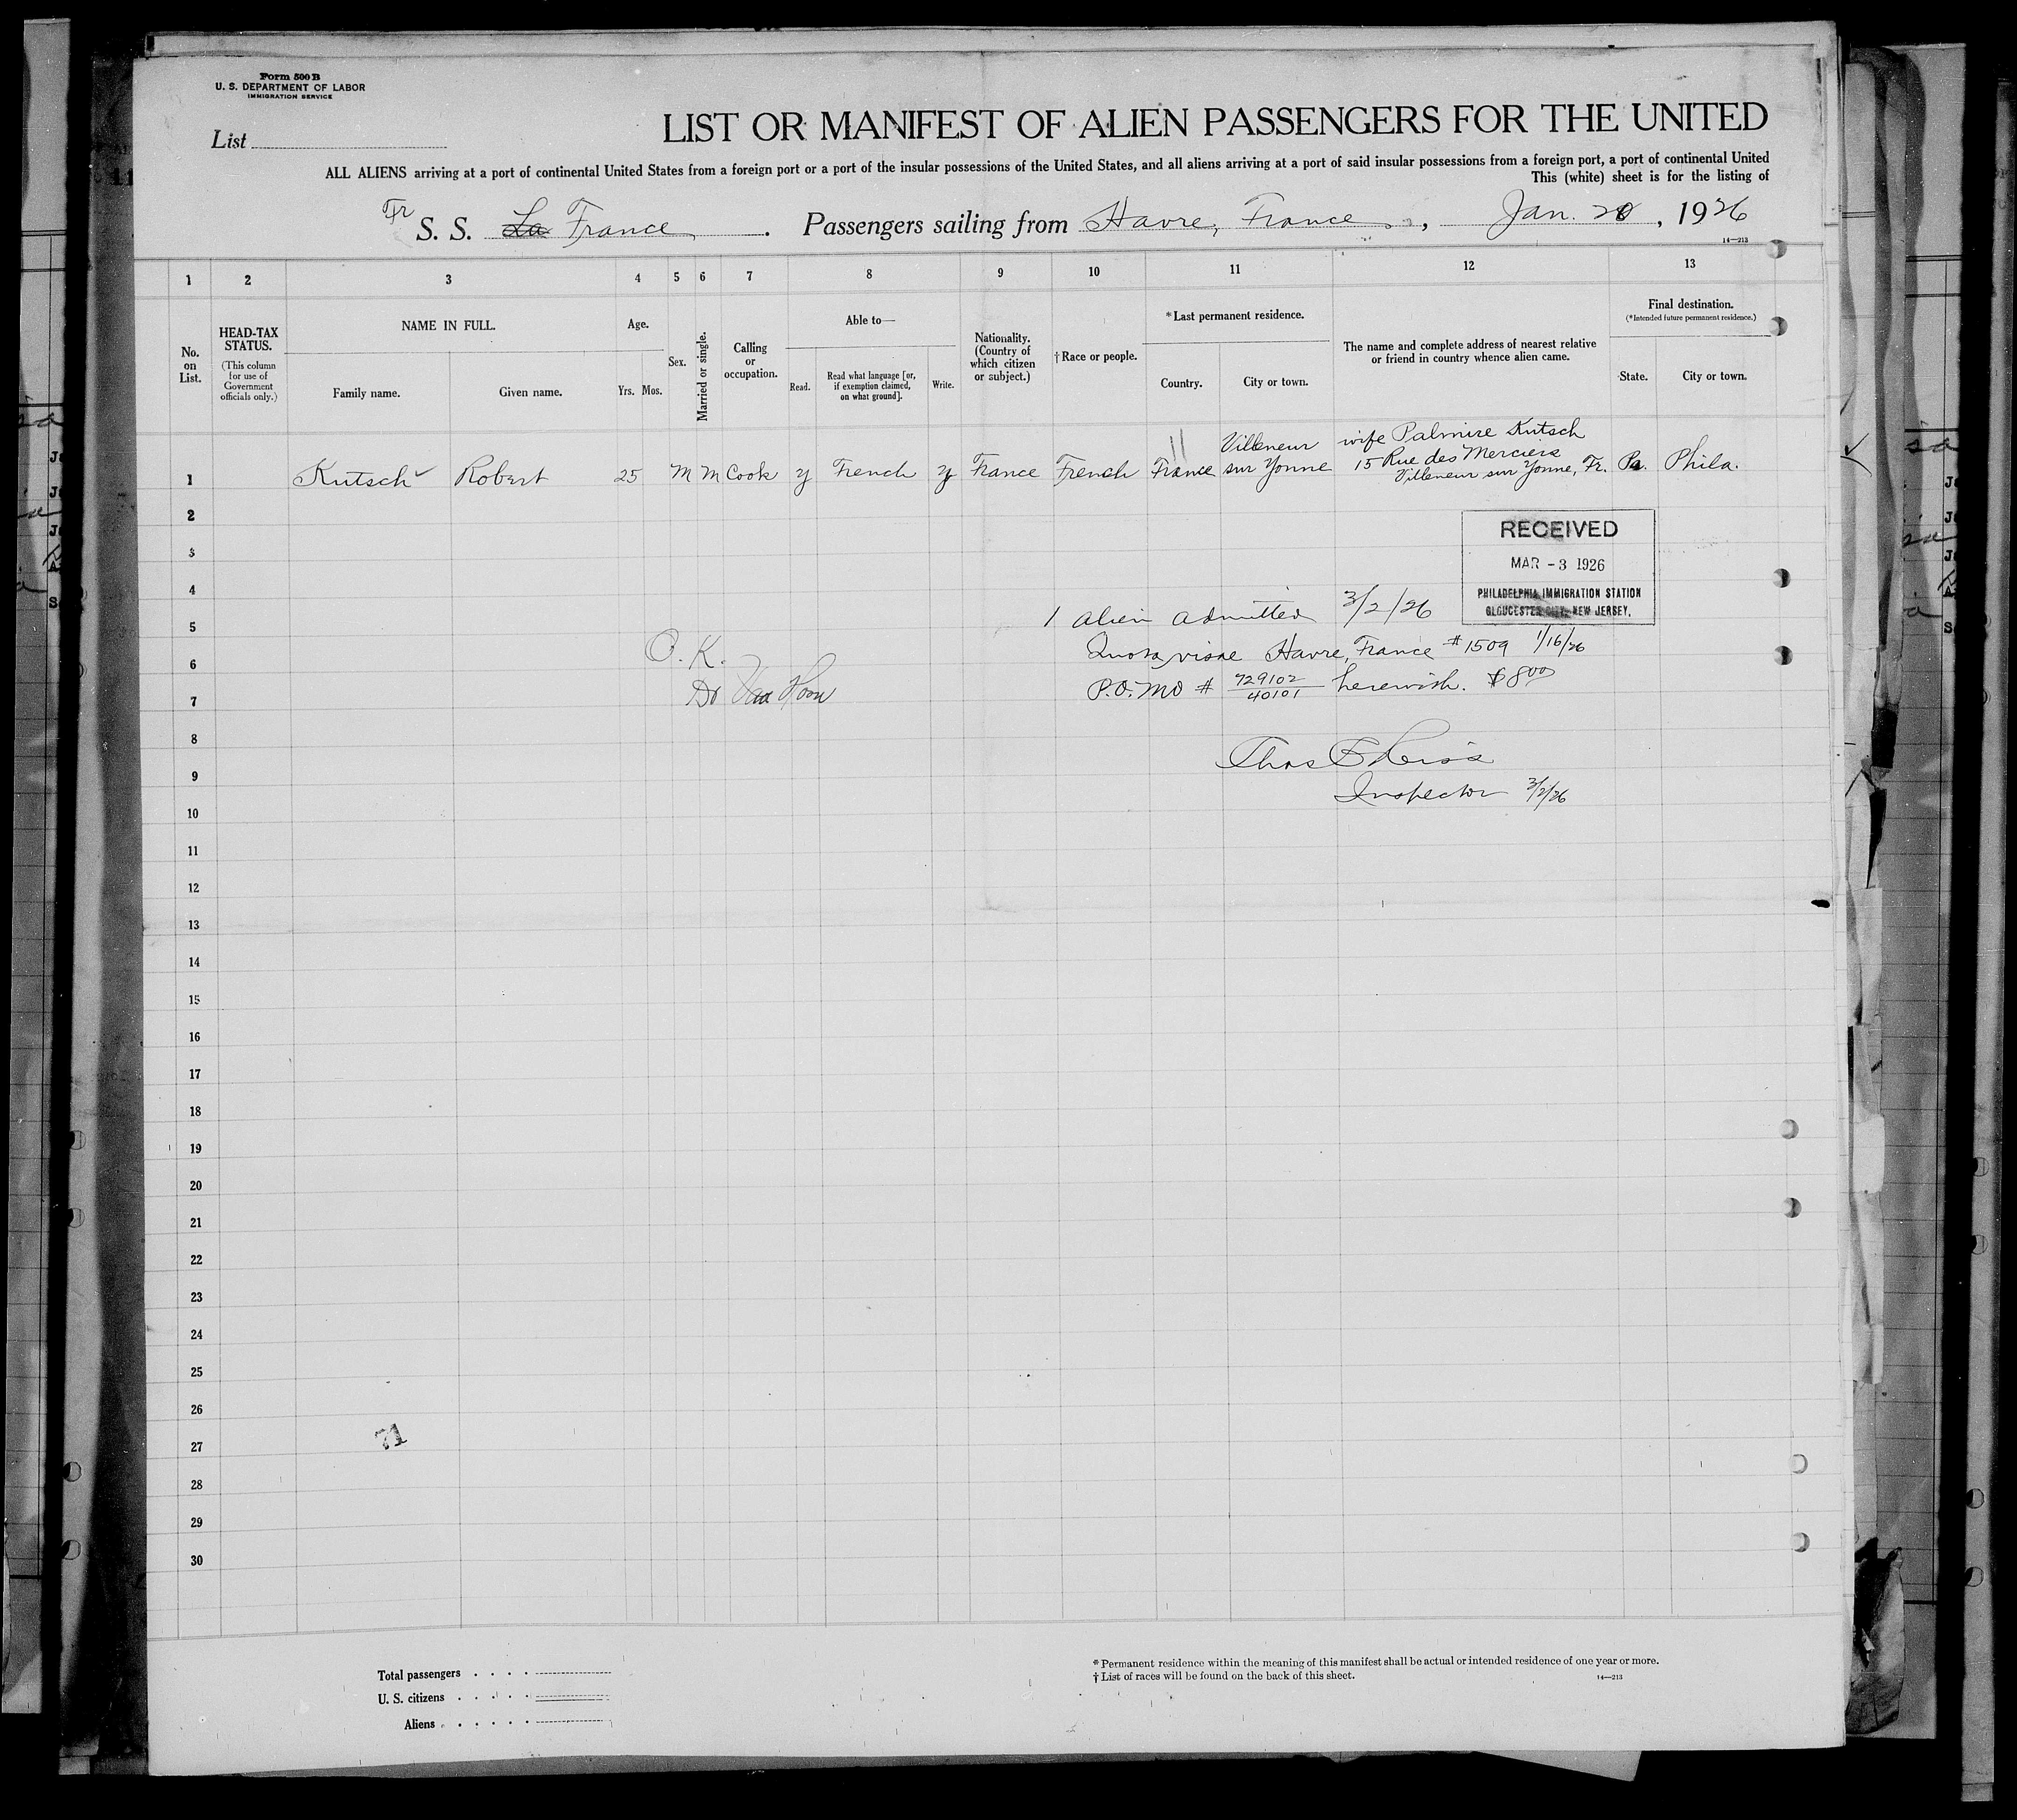 Form 500 B
U. S. DEPARTMENT OF LABOR
IMMIGRATION SERVICE
List
LIST OR MANIFEST OF ALIEN PASSENGERS FOR THE UNITED
ALL ALIENS arriving at a port of continental United States from a foreign port or a port of the insular possessions of the United States, and all aliens arriving at a port of said insular possessions from a foreign port, a port of continental United
This (white) sheet is for the listing of
Fr S. S. La France. Passengers sailing from Havre, France, Jan. 20, 1926
14—213
1 2 3 4 5 6 7 8 9 10 11 12 13
No. on List.
HEAD-TAX STATUS.
(This column for use of Government officials only.)
NAME IN FULL.
Family name.
Given name.
Age.
Yrs. Mos.
Sex.
Married or single.
Calling or occupation.
Able to—
Read.
Read what language [or, if exemption claimed, on what ground].
Write.
Nationality. (Country of which citizen or subject.)
†Race or people.
*Last permanent residence.
Country.
City or town.
The name and complete address of nearest relative or friend in country whence alien came.
Final destination.
(*Intended future permanent residence.)
State.
City or town.
1 Kutsch Robert 25 M M Cook y French y France French France Villeneur sur Yonne wife Palmire Kutsch 15 Rue des Merciers Villeneur sur Yonne, Fr. Pa. Phila.
2
3
4
5
6
7
8
9
10
11
12
13
14
15
16
17
18
19
20
21
22
23
24
25
26
27
28
29
30
RECEIVED
MAR - 3 1926
PHILADELPHIA IMMIGRATION STATION
GLOUCESTER CITY, NEW JERSEY.
1 alien admitted 3/2/26
Quota visae Havre, France #1509 1/16/26
P.O. MO # 729102 40101 herewith. $8 00
O. K.
Dr Van Horn
Thos
Inspector 3/2/26
71
Total passengers
U. S. citizens
Aliens
* Permanent residence within the meaning of this manifest shall be actual or intended residence of one year or more.
† List of races will be found on the back of this sheet.
14—213